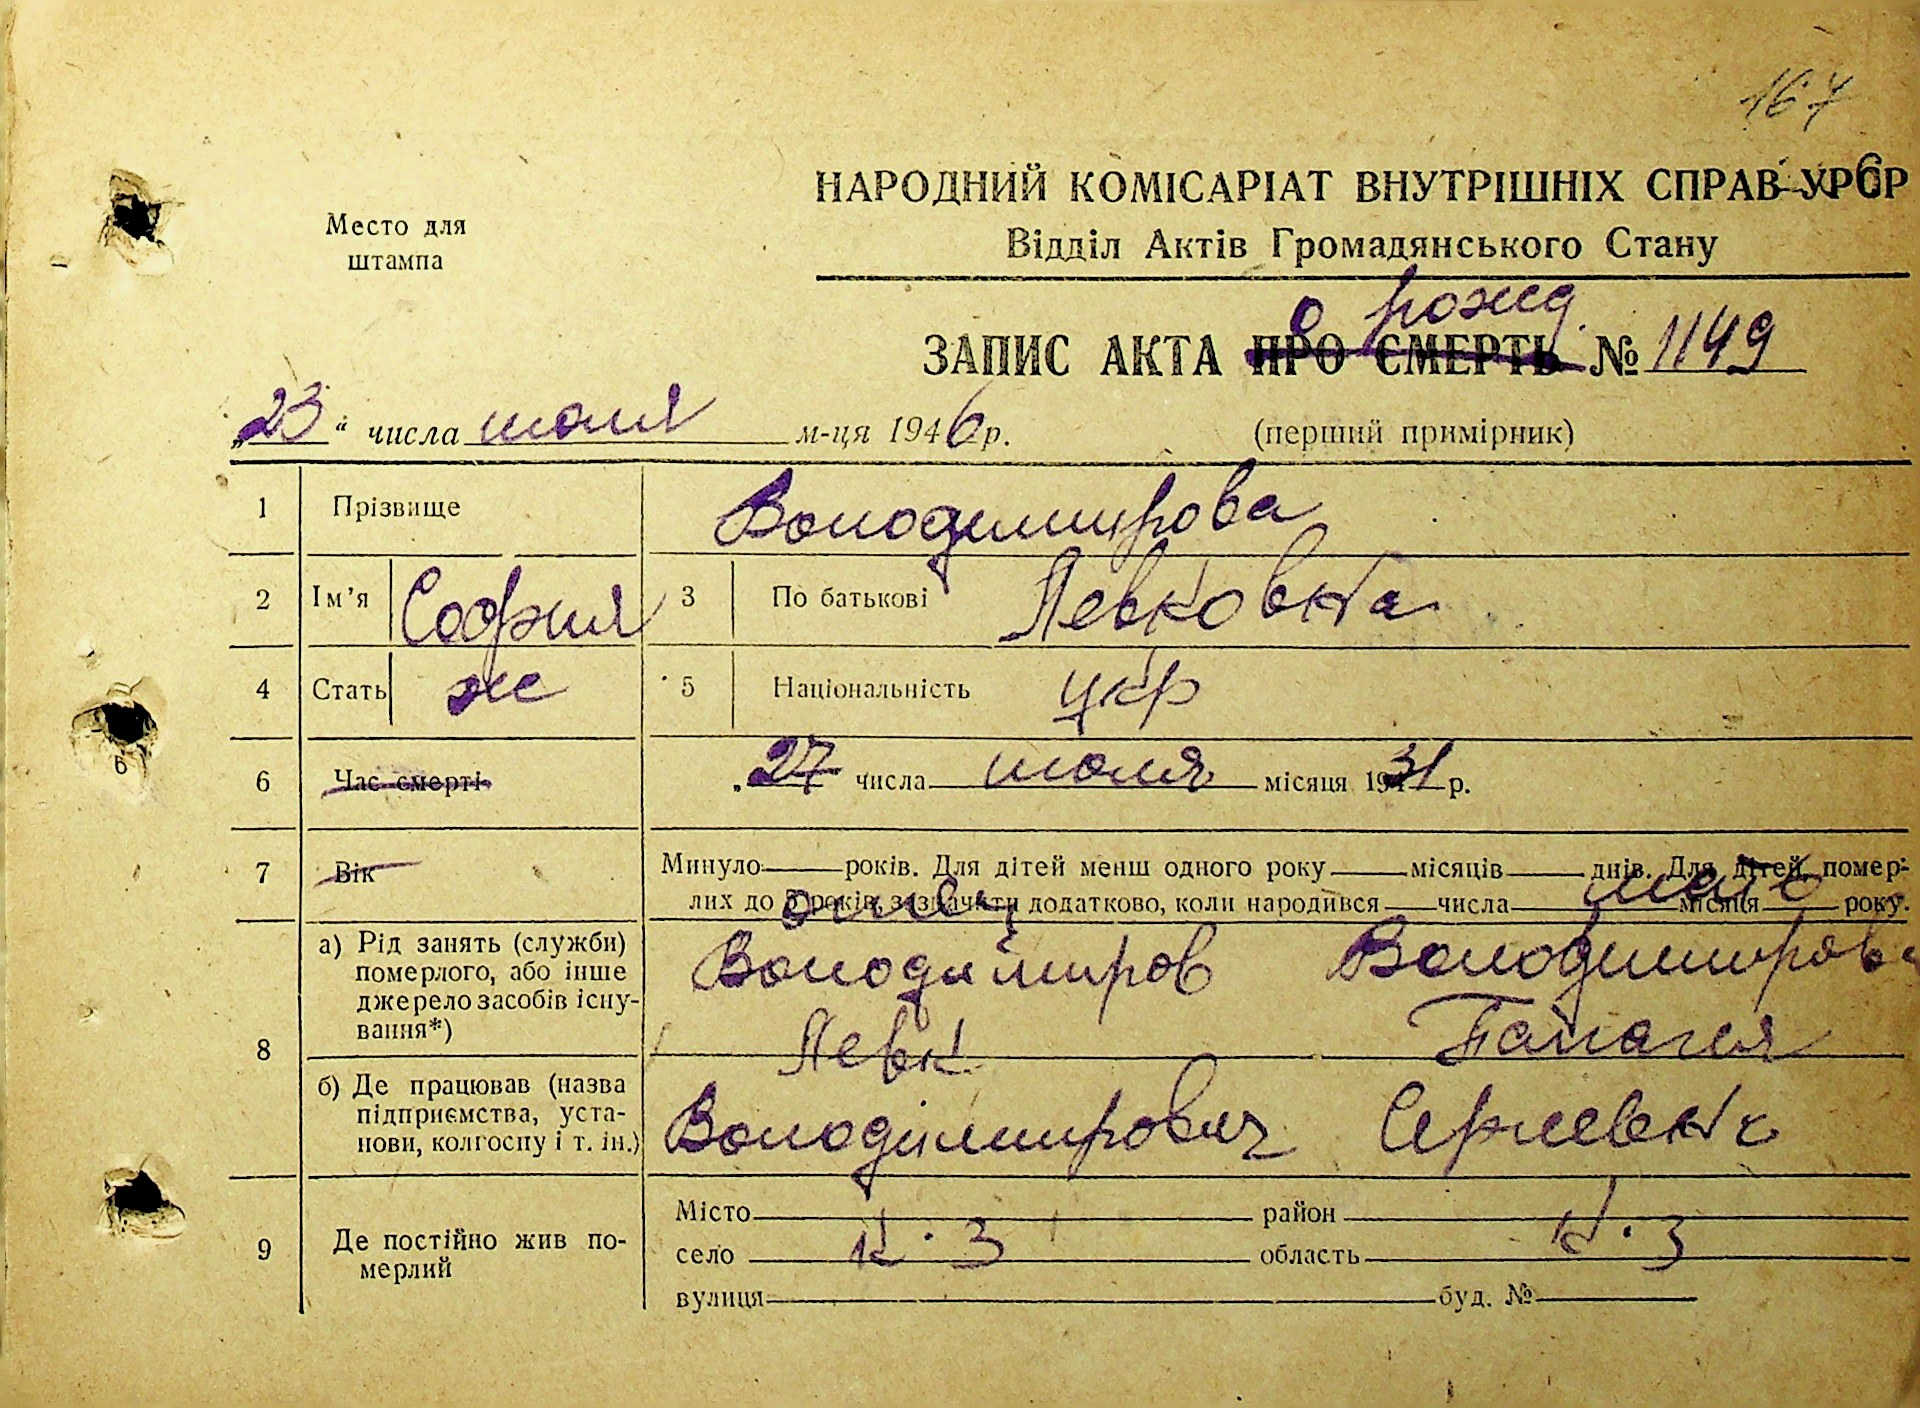 167
НАРОДНИЙ КОМІСАРІАТ ВНУТРІШНІХ СПРАВ УРСР
Место для штампа
Відділ Актів Громадянського Стану
о рожд.
ЗАПИС АКТА ПРО СМЕРТЬ № 1149
„23“ числа июля м-ця 1946 р. (перший примірник)
1 Прізвище Володимирова
2 Ім'я София 3 По батькові Левковна
4 Стать ж 5 Національність укр
6 Час смерті „27 числа июля місяця 1931 р.
7 Вік Минуло років. Для дітей менш одного року місяців днів. Для дітей, помер-
лих до 5 років, зазначити додатково, коли народився числа місяця року.
отец мать
8 а) Рід занять (служби) померлого, або інше джерело засобів існу-вання*)
Володимиров Володимирова
Левк Панагея
б) Де працював (назва підприємства, уста-нови, колгоспу і т. ін.)
Володимирович Сергеевна
9 Де постійно жив по-мерлий
Місто район
село К. З область К. З
вулиця буд. №